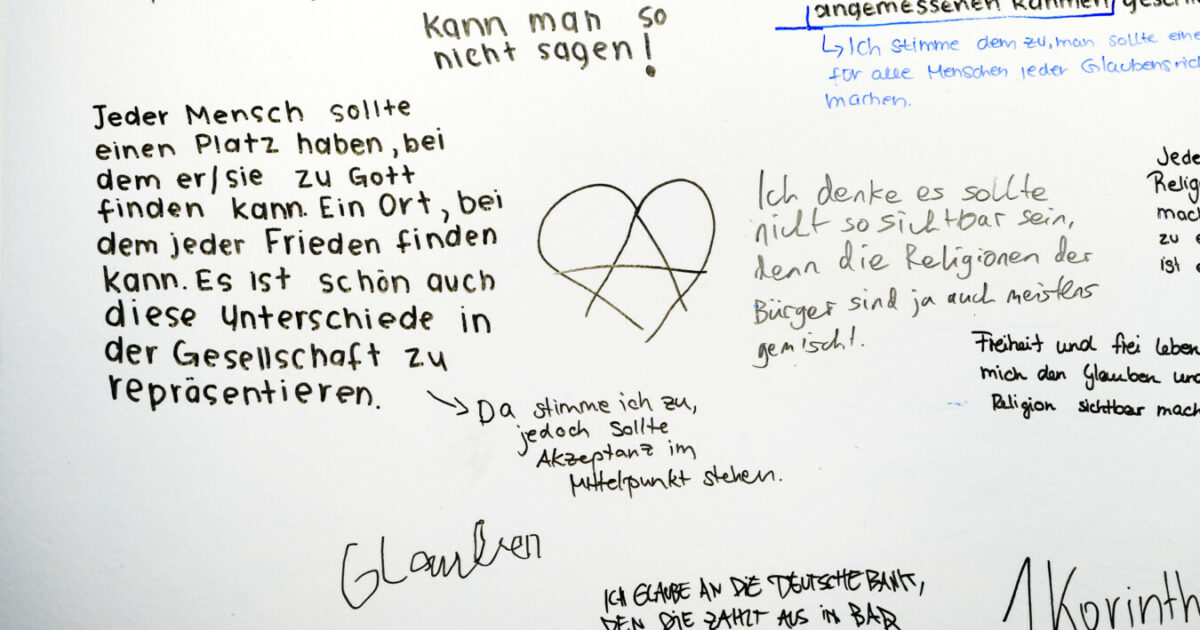 kann man so
nicht sagen!
angemessenen Rahmen
↳ Ich stimme dem zu, man sollte eine
für alle Menschen jeder Glaubensric
machen.
Jeder Mensch sollte
einen Platz haben, bei
dem er/sie zu Gott
finden kann. Ein Ort, bei
dem jeder Frieden finden
kann. Es ist schön auch
diese Unterschiede in
der Gesellschaft zu
repräsentieren.
Da stimme ich zu,
jedoch sollte
Akzeptanz im
Mittelpunkt stehen.
Ich denke es sollte
nicht so sichtbar sein,
denn die Religionen der
Bürger sind ja auch meistens
gemischt.
Jede
Relig
mac
zu e
ist e
Freiheit und frei leben
mich den Glauben und
Religion sichtbar mach
Glauben
ICH GLAUBE AN DIE DEUTSCHE BANK,
DEN DIE ZAHLT AUS IN BAR
1 Korinth